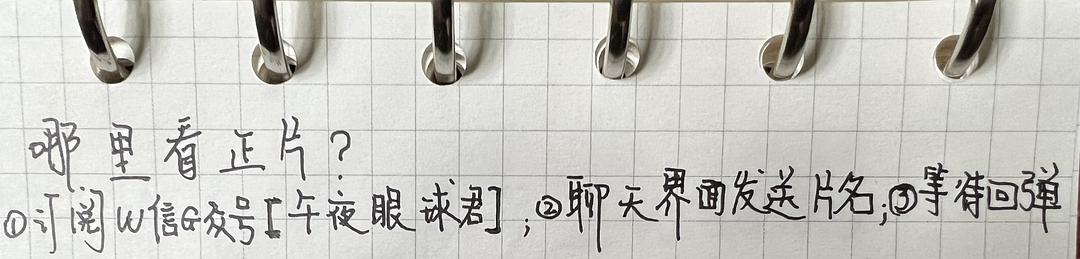 哪里看正片?
①订阅W信G众号[午夜眼球君],②聊天界面发送片名,③等待回弹